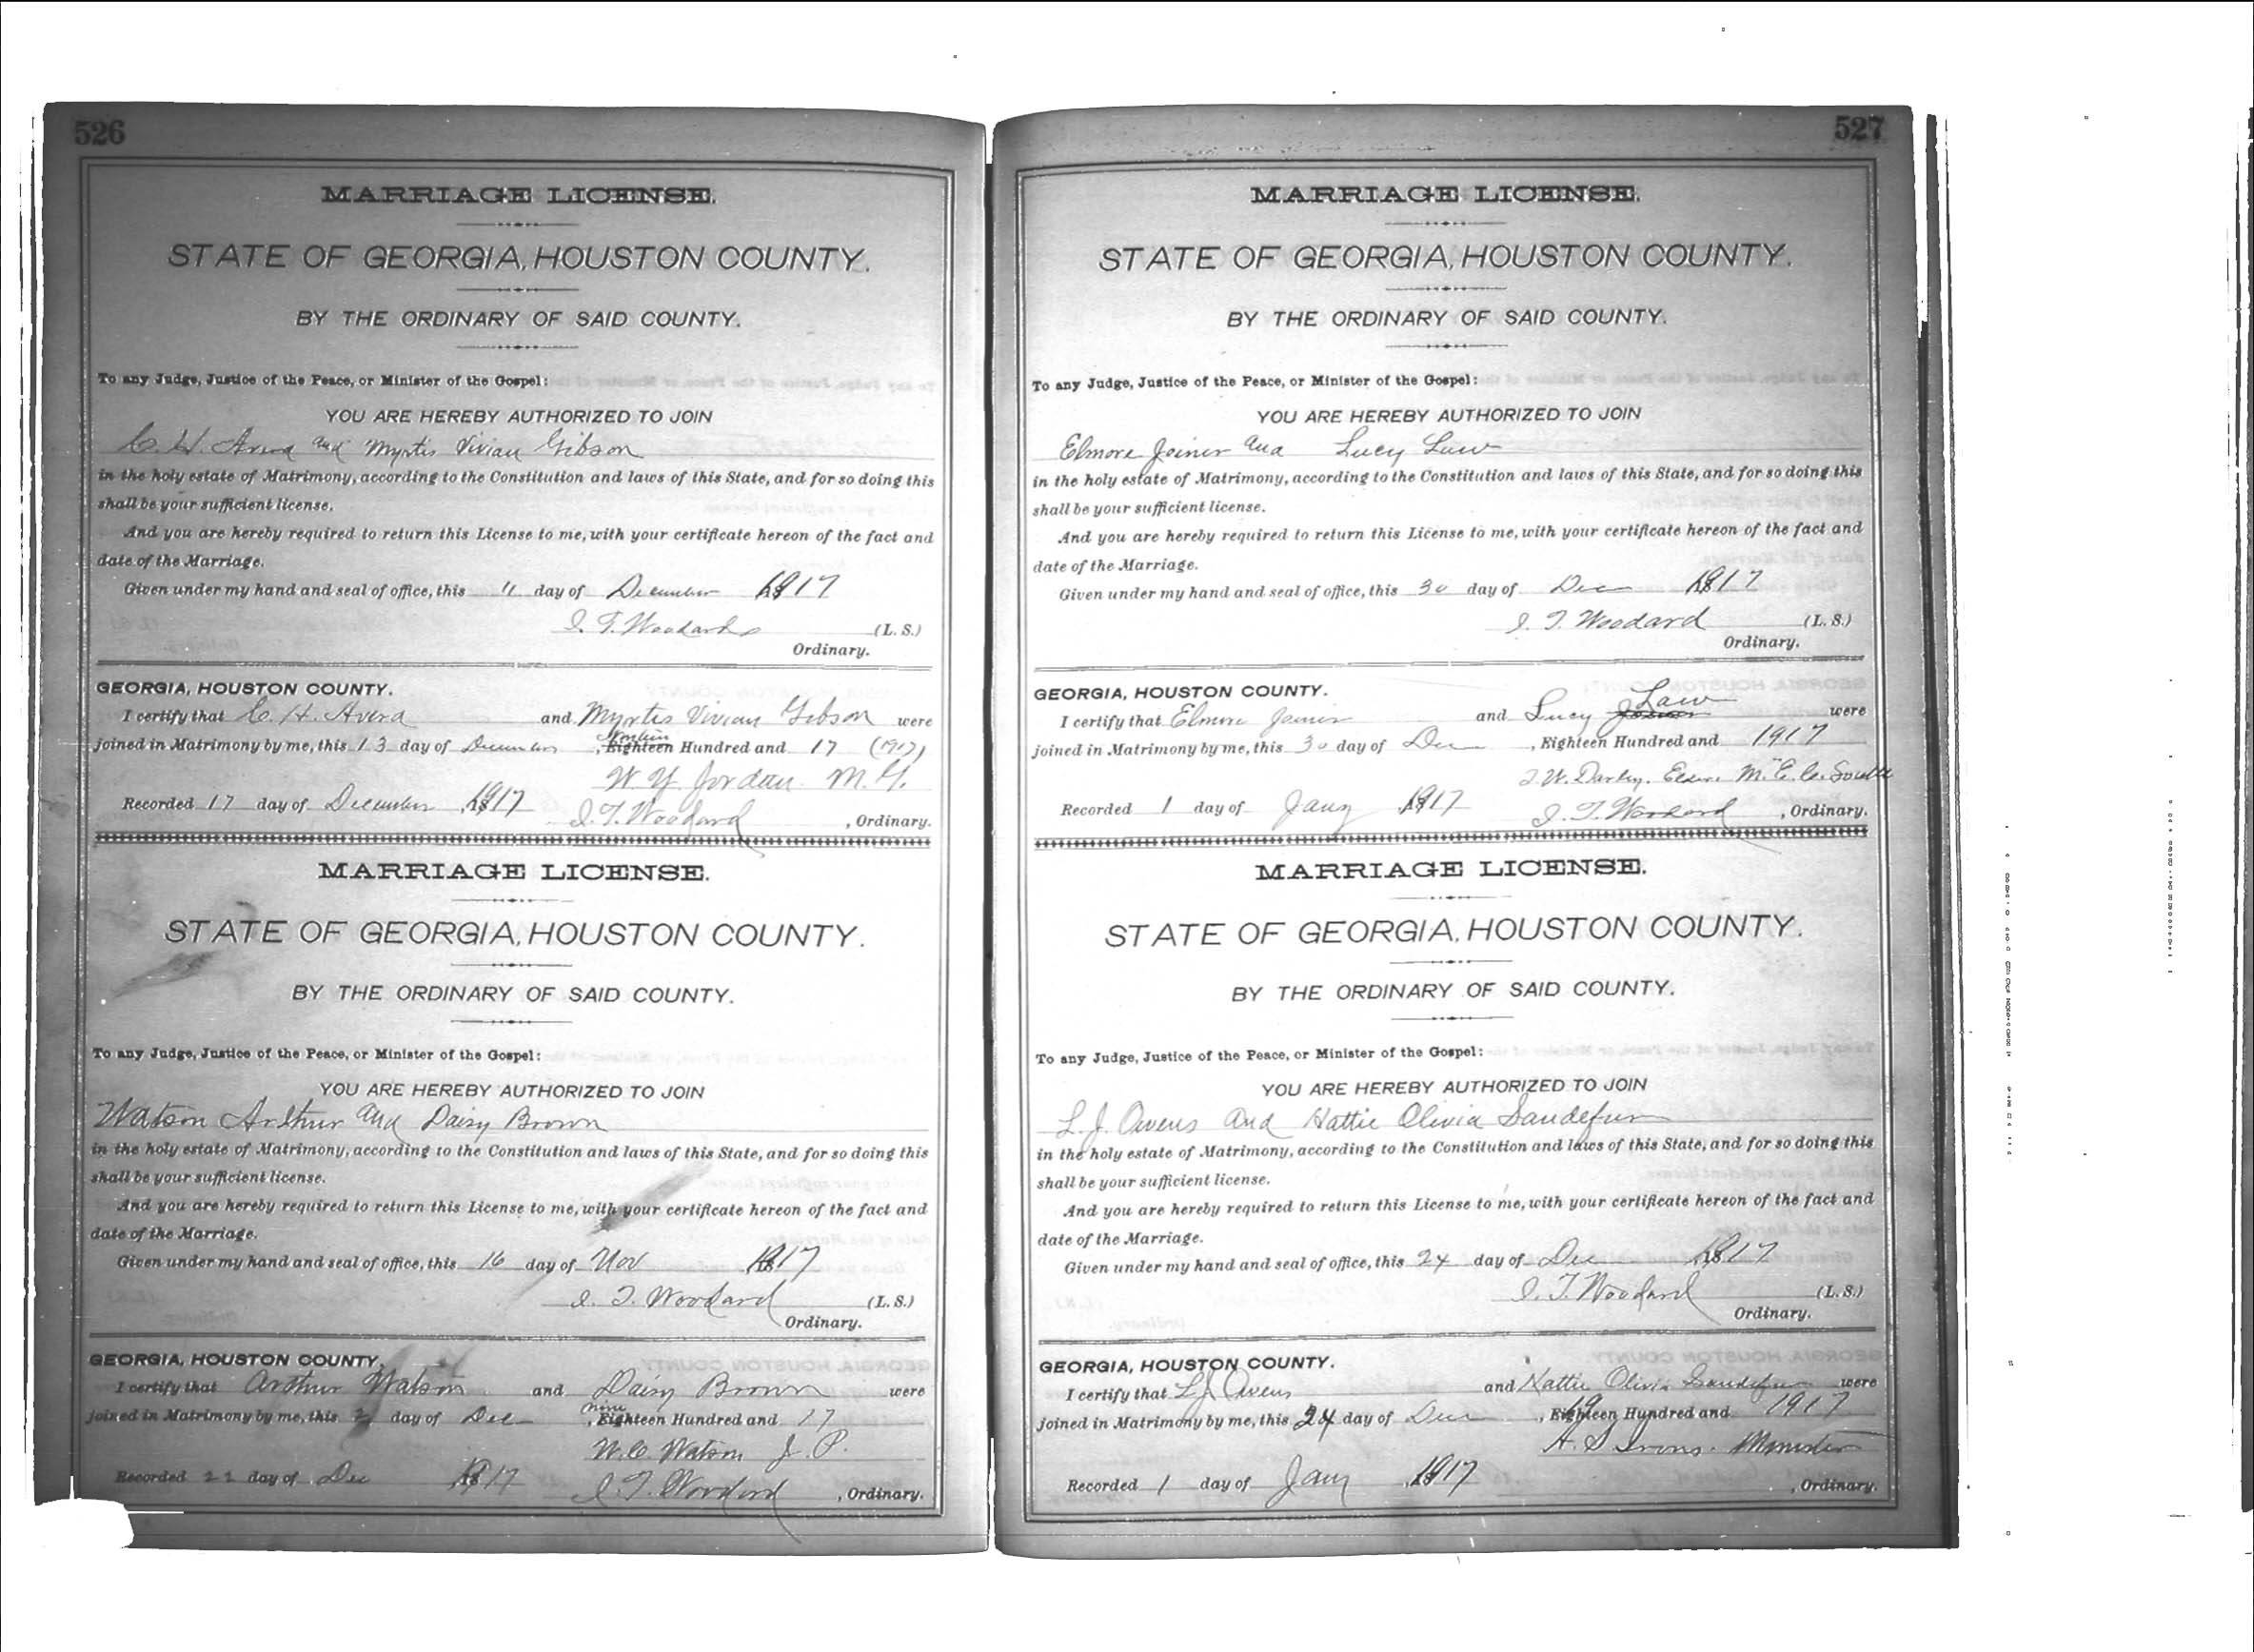 526
MARRIAGE LICENSE.
STATE OF GEORGIA, HOUSTON COUNTY.
BY THE ORDINARY OF SAID COUNTY.
To any Judge, Justice of the Peace, or Minister of the Gospel:
YOU ARE HEREBY AUTHORIZED TO JOIN
C. H. Avera and Myrtis Vivian Gibson
in the holy estate of Matrimony, according to the Constitution and laws of this State, and for so doing this
shall be your sufficient license.
And you are hereby required to return this License to me, with your certificate hereon of the fact and
date of the Marriage.
Given under my hand and seal of office, this 11 day of December 1917
I. T. Woodard (L. S.)
Ordinary.
GEORGIA, HOUSTON COUNTY.
I certify that C. H. Avera and Myrtis Vivian Gibson were
joined in Matrimony by me, this 13 day of December, Eighteen Hundred and 17 (1917)
W. Y. Jordan M. G.
Recorded 17 day of December, 1917 I. T. Woodard, Ordinary.
MARRIAGE LICENSE.
STATE OF GEORGIA, HOUSTON COUNTY.
BY THE ORDINARY OF SAID COUNTY.
To any Judge, Justice of the Peace, or Minister of the Gospel:
YOU ARE HEREBY AUTHORIZED TO JOIN
Watson Arthur and Daisy Brown
in the holy estate of Matrimony, according to the Constitution and laws of this State, and for so doing this
shall be your sufficient license.
And you are hereby required to return this License to me, with your certificate hereon of the fact and
date of the Marriage.
Given under my hand and seal of office, this 16 day of Nov 1917
I. T. Woodard (L. S.)
Ordinary.
GEORGIA, HOUSTON COUNTY.
I certify that Arthur Watson and Daisy Brown were
nine
joined in Matrimony by me, this day of Dec, Eighteen Hundred and 17
W. C. Watson J. P.
Recorded 22 day of Dec 1917 I. T. Woodard, Ordinary.
527
MARRIAGE LICENSE.
STATE OF GEORGIA, HOUSTON COUNTY.
BY THE ORDINARY OF SAID COUNTY.
To any Judge, Justice of the Peace, or Minister of the Gospel:
YOU ARE HEREBY AUTHORIZED TO JOIN
Elmore Joiner and Lucy Law
in the holy estate of Matrimony, according to the Constitution and laws of this State, and for so doing this
shall be your sufficient license.
And you are hereby required to return this License to me, with your certificate hereon of the fact and
date of the Marriage.
Given under my hand and seal of office, this 30 day of Dec 1917
I. T. Woodard (L. S.)
Ordinary.
GEORGIA, HOUSTON COUNTY.
Law
I certify that Elmore Joiner and Lucy Joiner were
joined in Matrimony by me, this 30 day of Dec, Eighteen Hundred and 1917
M. E. C. South
Recorded 1 day of Jany 1917 I. T. Woodard, Ordinary.
MARRIAGE LICENSE.
STATE OF GEORGIA, HOUSTON COUNTY.
BY THE ORDINARY OF SAID COUNTY.
To any Judge, Justice of the Peace, or Minister of the Gospel:
YOU ARE HEREBY AUTHORIZED TO JOIN
L. J. Owens and Hattie Olivia Sandefur
in the holy estate of Matrimony, according to the Constitution and laws of this State, and for so doing this
shall be your sufficient license.
And you are hereby required to return this License to me, with your certificate hereon of the fact and
date of the Marriage.
Given under my hand and seal of office, this 24 day of Dec 1917
I. T. Woodard (L. S.)
Ordinary.
GEORGIA, HOUSTON COUNTY.
I certify that L. J. Owens and Hattie Olivia Sandefur were
joined in Matrimony by me, this 24 day of Dec, Eighteen Hundred and 1917
Minister
Recorded 1 day of Jany, 1917, Ordinary.